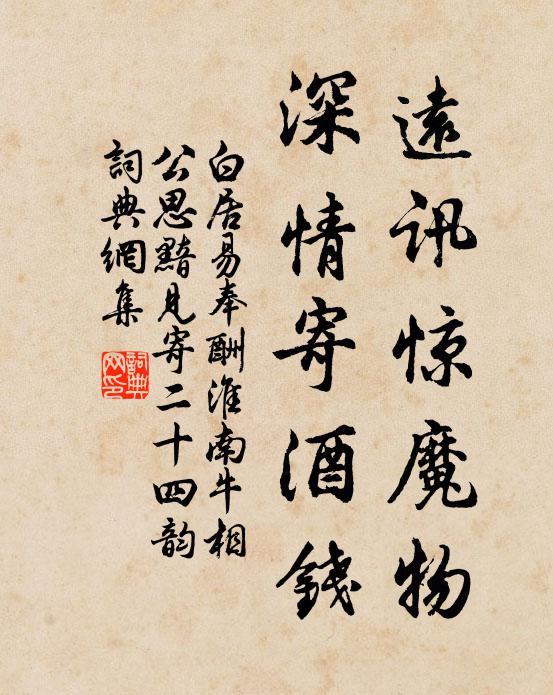 遠訊惊魔物
深情寄酒錢
白居易奉酬淮南牛相
公思黯見寄二十四韵
詞典網集
詞典网印